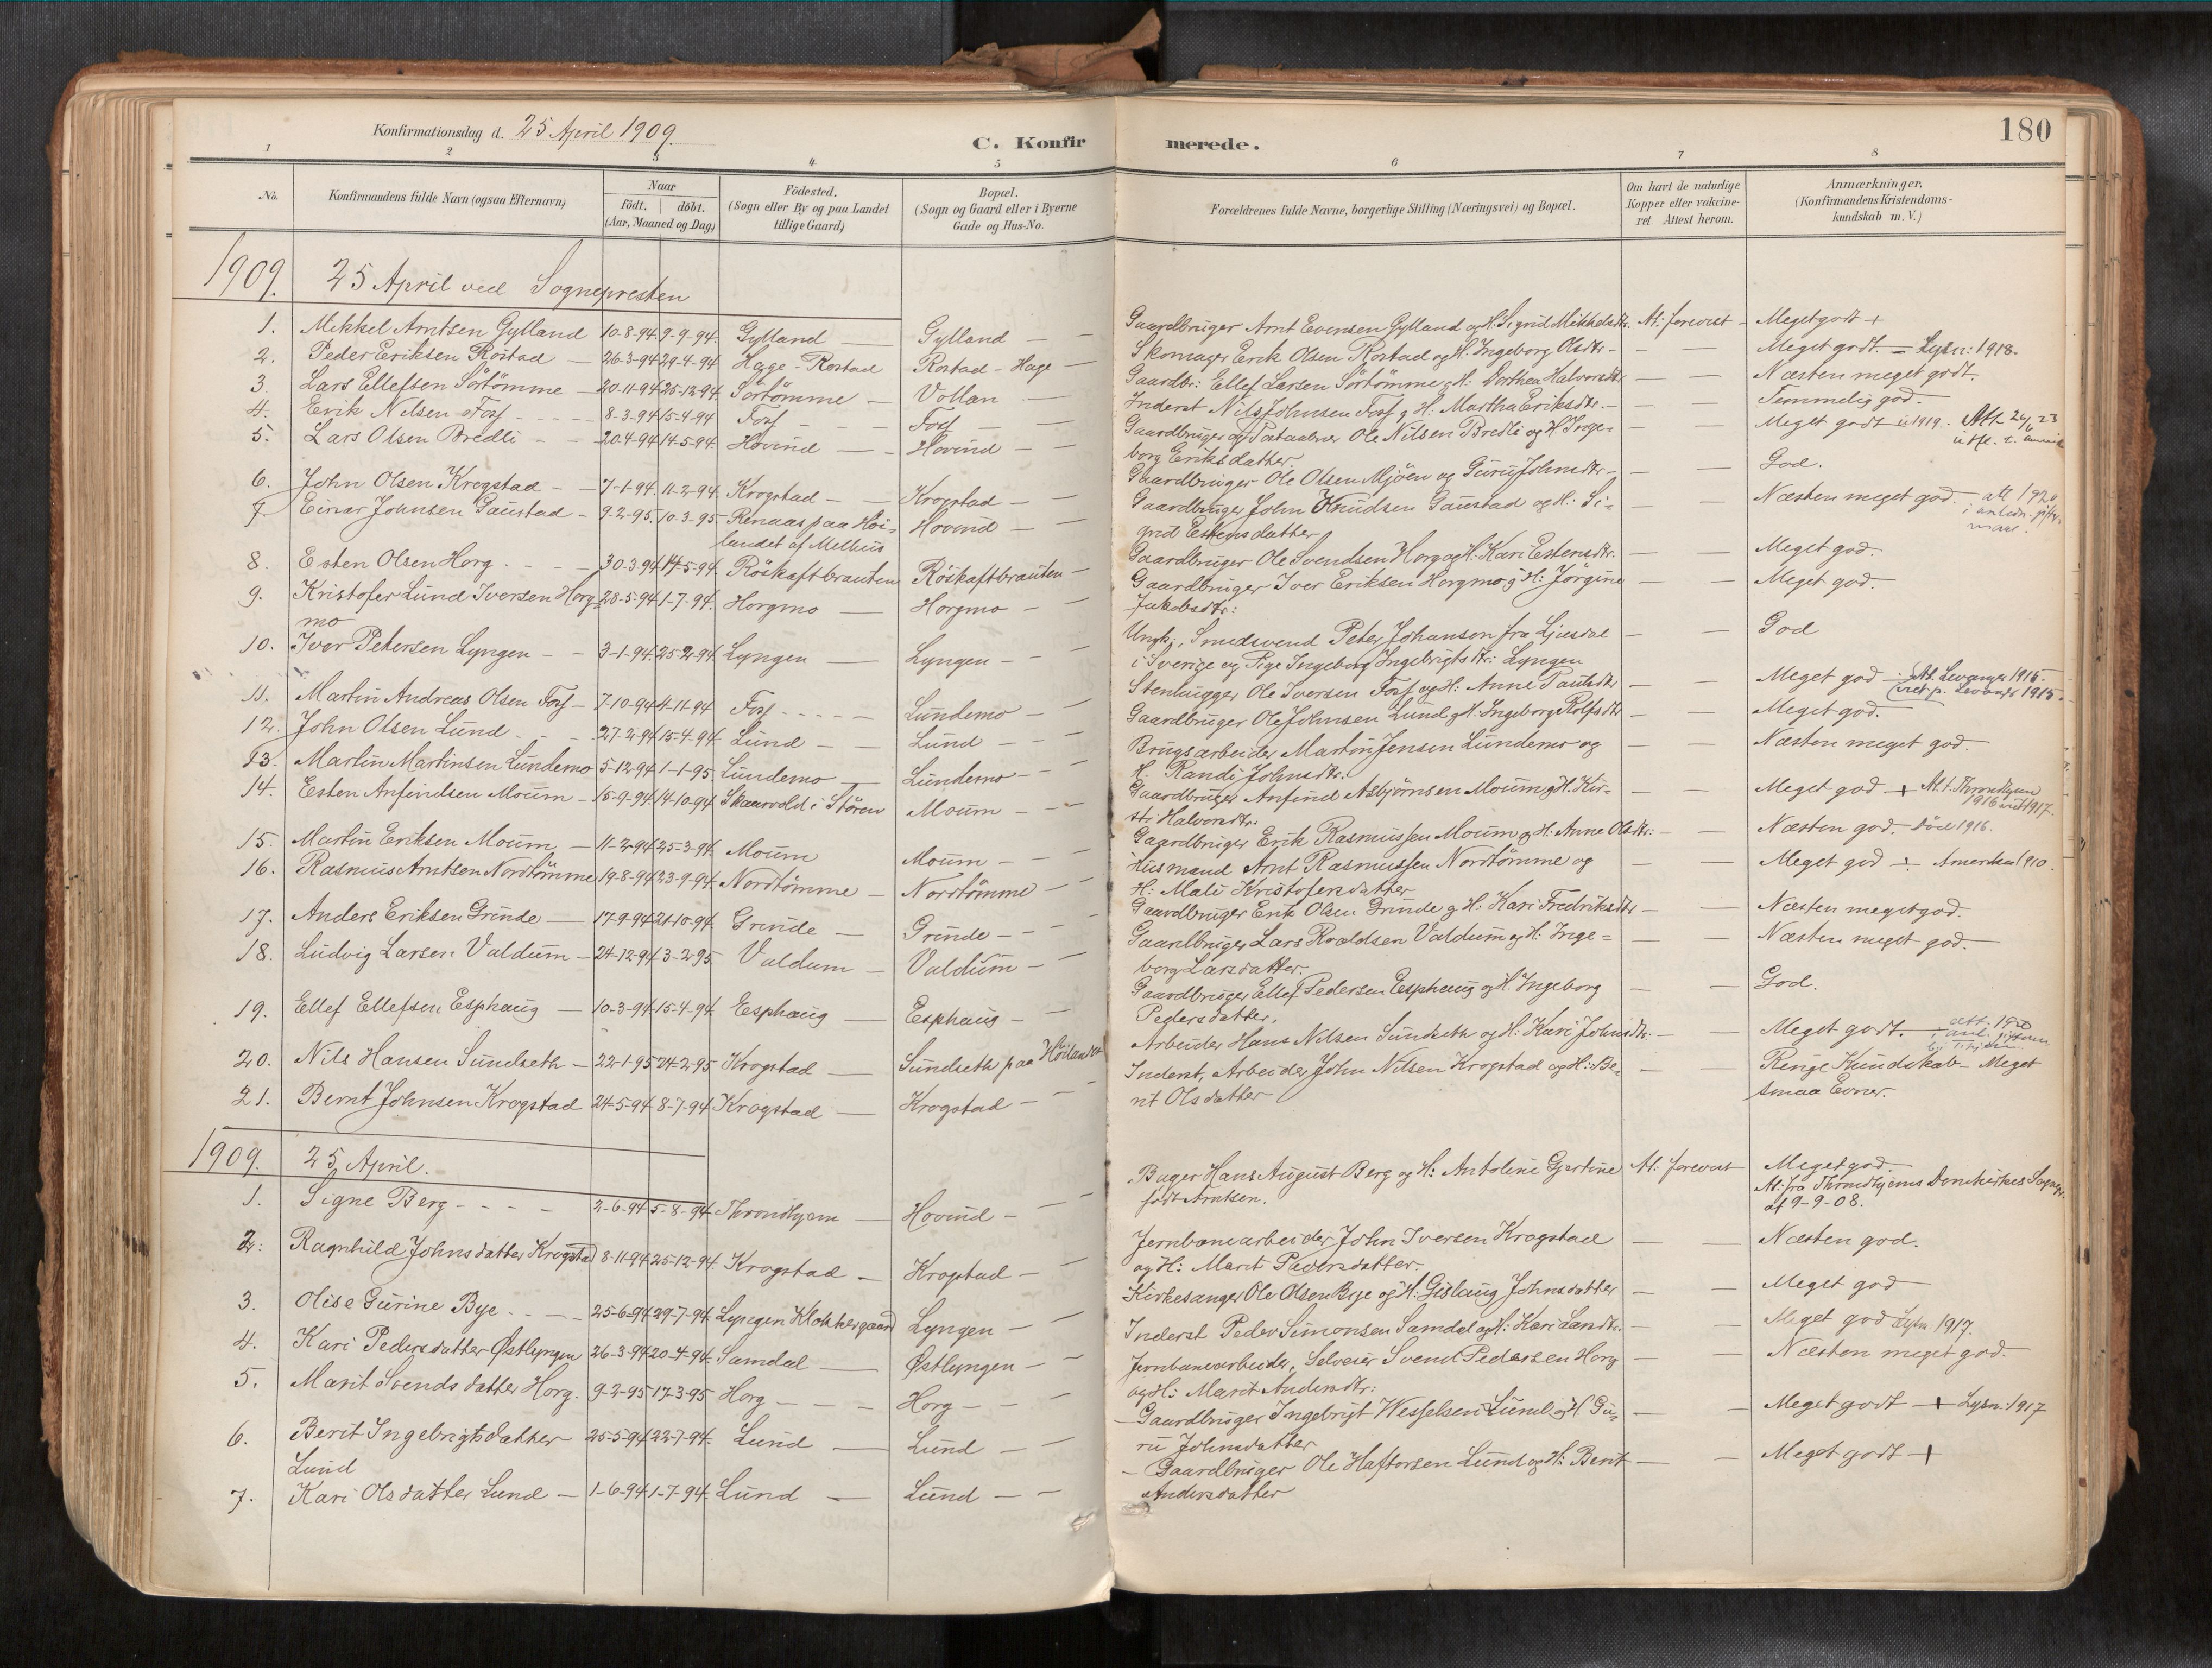 Konfirmationsdag d. 25 April 1909.
C. Konfirmerede.
180
1 2 3 4 5 6 7 8
No.
Konfirmandens fulde Navn (ogsaa Efternavn)
Naar
födt. döbt.
(Aar, Maaned og Dag)
Födested.
(Sogn eller By og paa Landet
tillige Gaard)
Bopæl.
(Sogn og Gaard eller i Byerne
Gade og Hus-No.
Forældrenes fulde Navne, borgerlige Stilling (Næringsvei) og Bopæl.
Om havt de naturlige
Kopper eller vakcine-
ret Attest herom.
Anmærkninger,
(Konfirmandens Kristendoms-
kundskab m. V.)
1909. 25 April ved Sognepresten
1. Mikkel Arntsen Gylland 10-8-94. 9-9-94. Gylland — Gylland — Gaardbruger Arnt Evensen Gylland og H: Sigrid Mikkelsdtr. At: forevist — Meget godt +
2. Peder Eriksen Rostad — 26-3-94 29-4-94 Hage-Rostad Rostad-Hage — Skomager Erik Olsen Rostad og H. Ingeborg Olsdtr — — — Meget godt. — Lysn: 1918.
3. Lars Ellefsen Sörtömme — 20-11-94 25-12-94 Sörtömme — Vollan — Gaardbr: Ellef Larsen Sörtömme og H: Dorthea Halvorsdtr — — Næsten meget godt.
4. Erik Nilsen Fosf - - - 8-3-94 15-4-94 Fosf - - - Fosf — Inderst Nils Johnsen Fosf og H: Martha Eriksdtr. — — Temmelig god.
5. Lars Olsen Bredli - - 20-4-94 14-5-94 Hovind — Hovind — Gaardbruger og Postaabner Ole Nilsen Bredli og H. Inge-
borg Eriksdatter. — — Meget godt 1919. Att 26/6 23
6. John Olsen Krogstad - - 7-1-94. 11-2-94. Krogstad — Krogstad — Gaardbruger Ole Olsen Mjöen og Guru Johnsdtr — — — God.
7. Einar Johnsen Gaustad - 9-2-95. 10-3-95 Renaas paa Höi-
landet af Melhus Hovind — Gaardbruger John Knudsen Gaustad og H: Si-
grid Estensdatter — Næsten meget god. — att 1920
8. Esten Olsen Horg - - - 30-3-94 14-5-94. Röskaftbrauten Röskaftbrauten — Gaardbruger Ole Svendsen Horg og H: Kari Estensdtr. — — Meget god.
9. Kristofer Lund Iversen Horg-
mo 28-5-94 1-7-94. Horgmo — Horgmo — Gaardbruger Iver Eriksen Horgmo og H: Jörgine
Jakobsdtr: — — Meget god.
10. Iver Petersen Lyngen - - 3-1-94. 25-2-94. Lyngen — Lyngen - - Ungk:, Smedsvend Peter Johansen fra Ljusdal
i Sverige og Pige Ingeborg Ingebrigtsdtr: Lyngen — — God
11. Martin Andreas Olsen Fosf — 7-10-94 4-11-94 Fosf - - - Lundemo — Stenhugger Ole Iversen Fosf og H: Anne Paulsdtr — — Meget god — At. Levanger 1915.
viet p. Levanger 1915.
12. John Olsen Lund - - 27-2-94 15-4-94 Lund — Lund — Gaardbruger Ole Johnsen Lund og H: Ingeborg Rolfsdtr — — Meget god.
13. Martin Martinsen Lundemo 5-12-94 1-1-95. Lundemo — Lundemo - - Brugsarbeider Martin Jensen Lundemo og
H. Randi Johnsdtr. — — Næsten meget god.
14. Esten Anfindsen Moum — 15-9-94 14-10-94 Skaarvold i Stören Moum — Gaardbruger Anfind Asbjörnsen Moum og H. Kir-
sti Halvorsdtr: — — Meget god + At. t. Throndhjem
1916 viet 1917.
15. Martin Eriksen Moum — 11-2-94 25-3-94 Moum Moum — Gaardbruger Erik Rasmussen Moum og H: Anne Olsdtr: — — Næsten god. Död 1916.
16. Rasmus Arntsen Nordtömme 19-8-94 23-9-94. Nordtömme — Nordtömme — Husmand Arnt Rasmussen Nordtömme og
H: Mali Kristofersdatter — — Meget god — Amerika 1910.
17. Anders Eriksen Grinde — 17-9-94 21-10-94. Grinde — Grinde - - Gaardbruger Erik Olsen Grinde og H: Kari Fredriksdtr — — Næsten meget god.
18. Ludvig Larsen Valdum — 24-12-94 3-2-95 Valdum — Valdum — Gaardbruger Lars Roaldsen Valdum og H: Inge-
borg Larsdatter. — — Næsten meget god.
19. Ellef Ellefsen Esphaug — 10-3-94 15-4-94. Esphaug — Esphaug — Gaardbruger Ellef Pedersen Esphaug og H. Ingeborg
Pedersdatter. — — God.
20. Nils Hansen Sundseth — 22-1-95 24-2-95 Krogstad — Sundseth paa Höilandet Arbeider Hans Nilsen Sundseth og H: Kari Johnsdtr. — — Meget godt. — att. 1920
21. Bernt Johnsen Krogstad 24-5-94 8-7-94 Krogstad — Krogstad — Inderst, Arbeider John Nilsen Krogstad og H: Be-
rit Olsdatter — — Ringe Kundskab — Meget
smaa Evner.
1909. 25 April.
1. Signe Berg - - - - 2-6-94 5-8-94 Throndhjem — Hovind — Bager Hans August Berg og H: Antoline Gjertine
födt Arntsen. At: forevist Meget god.
At. fra Throndhjems Domkirkes Sogn
af 19-9-08.
2. Ragnhild Johnsdatter Krogstad 8-11-94 25-12-94. Krogstad — Krogstad — Jernbanearbeider John Iversen Krogstad
og H: Marit Pedersdatter. — — Næsten god.
3. Olise Gurine Bye - - - 25-6-94 29-7-94. Lyngen Klokkergaard Lyngen — Kirkesanger Ole Olsen Bye og H: Gislaug Johnsdatter — — Meget god
4. Kari Pedersdatter Østlyngen 26-3-94 20-4-94. Samdal — Østlyngen — Inderst Peder Simonsen Samdal og H: Kari Larsdtr. — — Meget god Lysn. 1917.
5. Marit Svendsdatter Horg. 9-2-95 17-3-95 Horg - - - Horg - - Jernbanearbeider, Selveier Svend Pedersen Horg
og H: Marit Andersdtr: — — Næsten meget god.
6. Berit Ingebrigtsdatter
Lund 25-5-94 22-7-94. Lund — Lund — Gaardbruger Ingebrigt Wesselsen Lund og H. Gu-
ru Johnsdatter — — Meget godt + Lysn: 1917
7. Kari Olsdatter Lund — 1-6-94 1-7-94. Lund — Lund — — Gaardbruger Ole Haftorsen Lund og H: Berit
Andersdatter — — Meget godt +